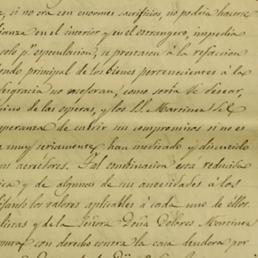 si no era con enormes sacrificios, no podia hacerse
ianza en el interior y en el estrangero, impedia
solo pr especulacion, se prestaron á la refaccion
onde principal de los bienes pertenecientes á la
desgracia no mejoran, como seria de desear,
de las esperas, y los
peranza de cubrir sus compromisos si no es
muy seriamente han meditado y discutido
sus acreedores. Tal combinacion está reducida
ica y de algunos de sus anecsidades á los
los valores aplicables á cada uno de ellos
y de la Señora Doña Dolores Martinez
con derecho contra la casa deudora por